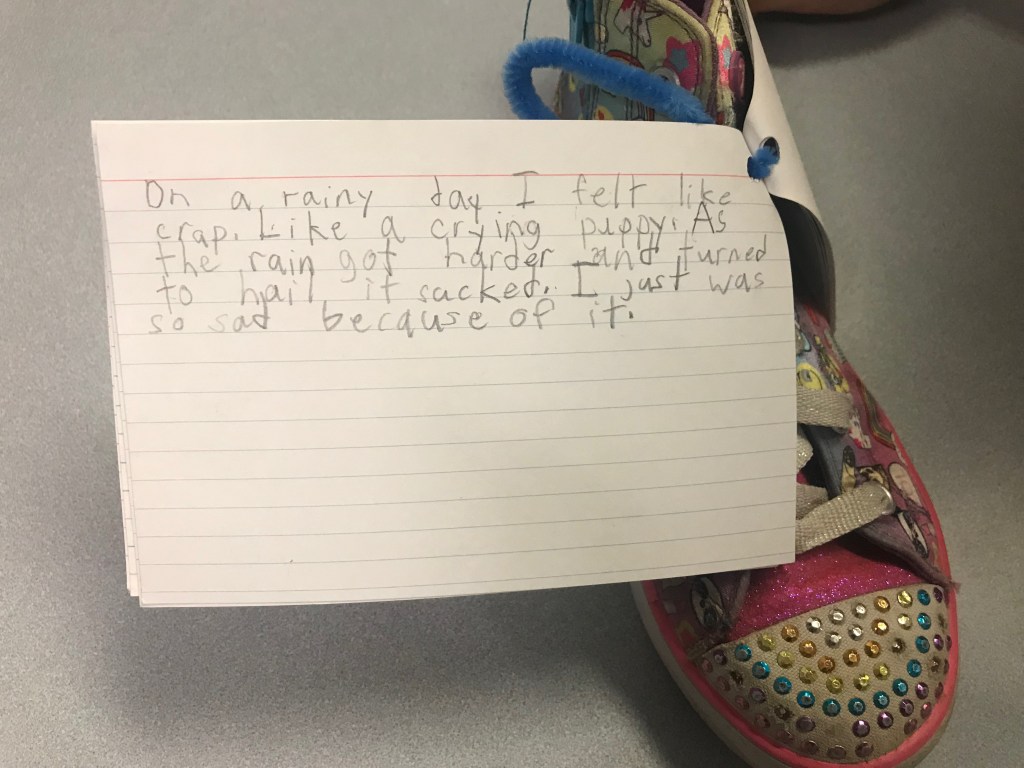 On a rainy day I felt like
crap. Like a crying puppy. As
the rain got harder and turned
to hail it sucked. I just was
so sad because of it.